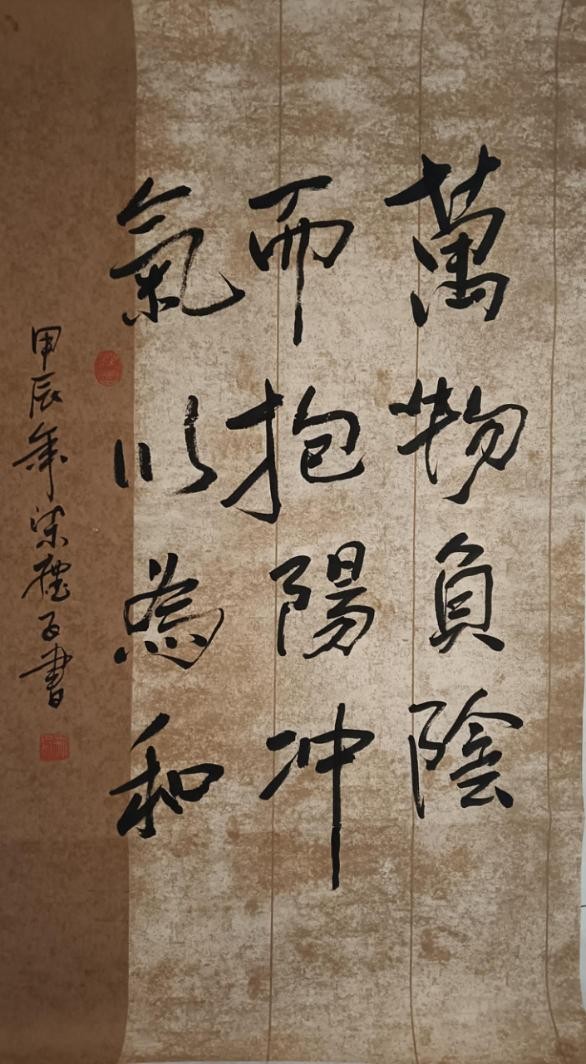 萬物負陰
而抱陽冲
氣以為和
甲辰年宋礼百書